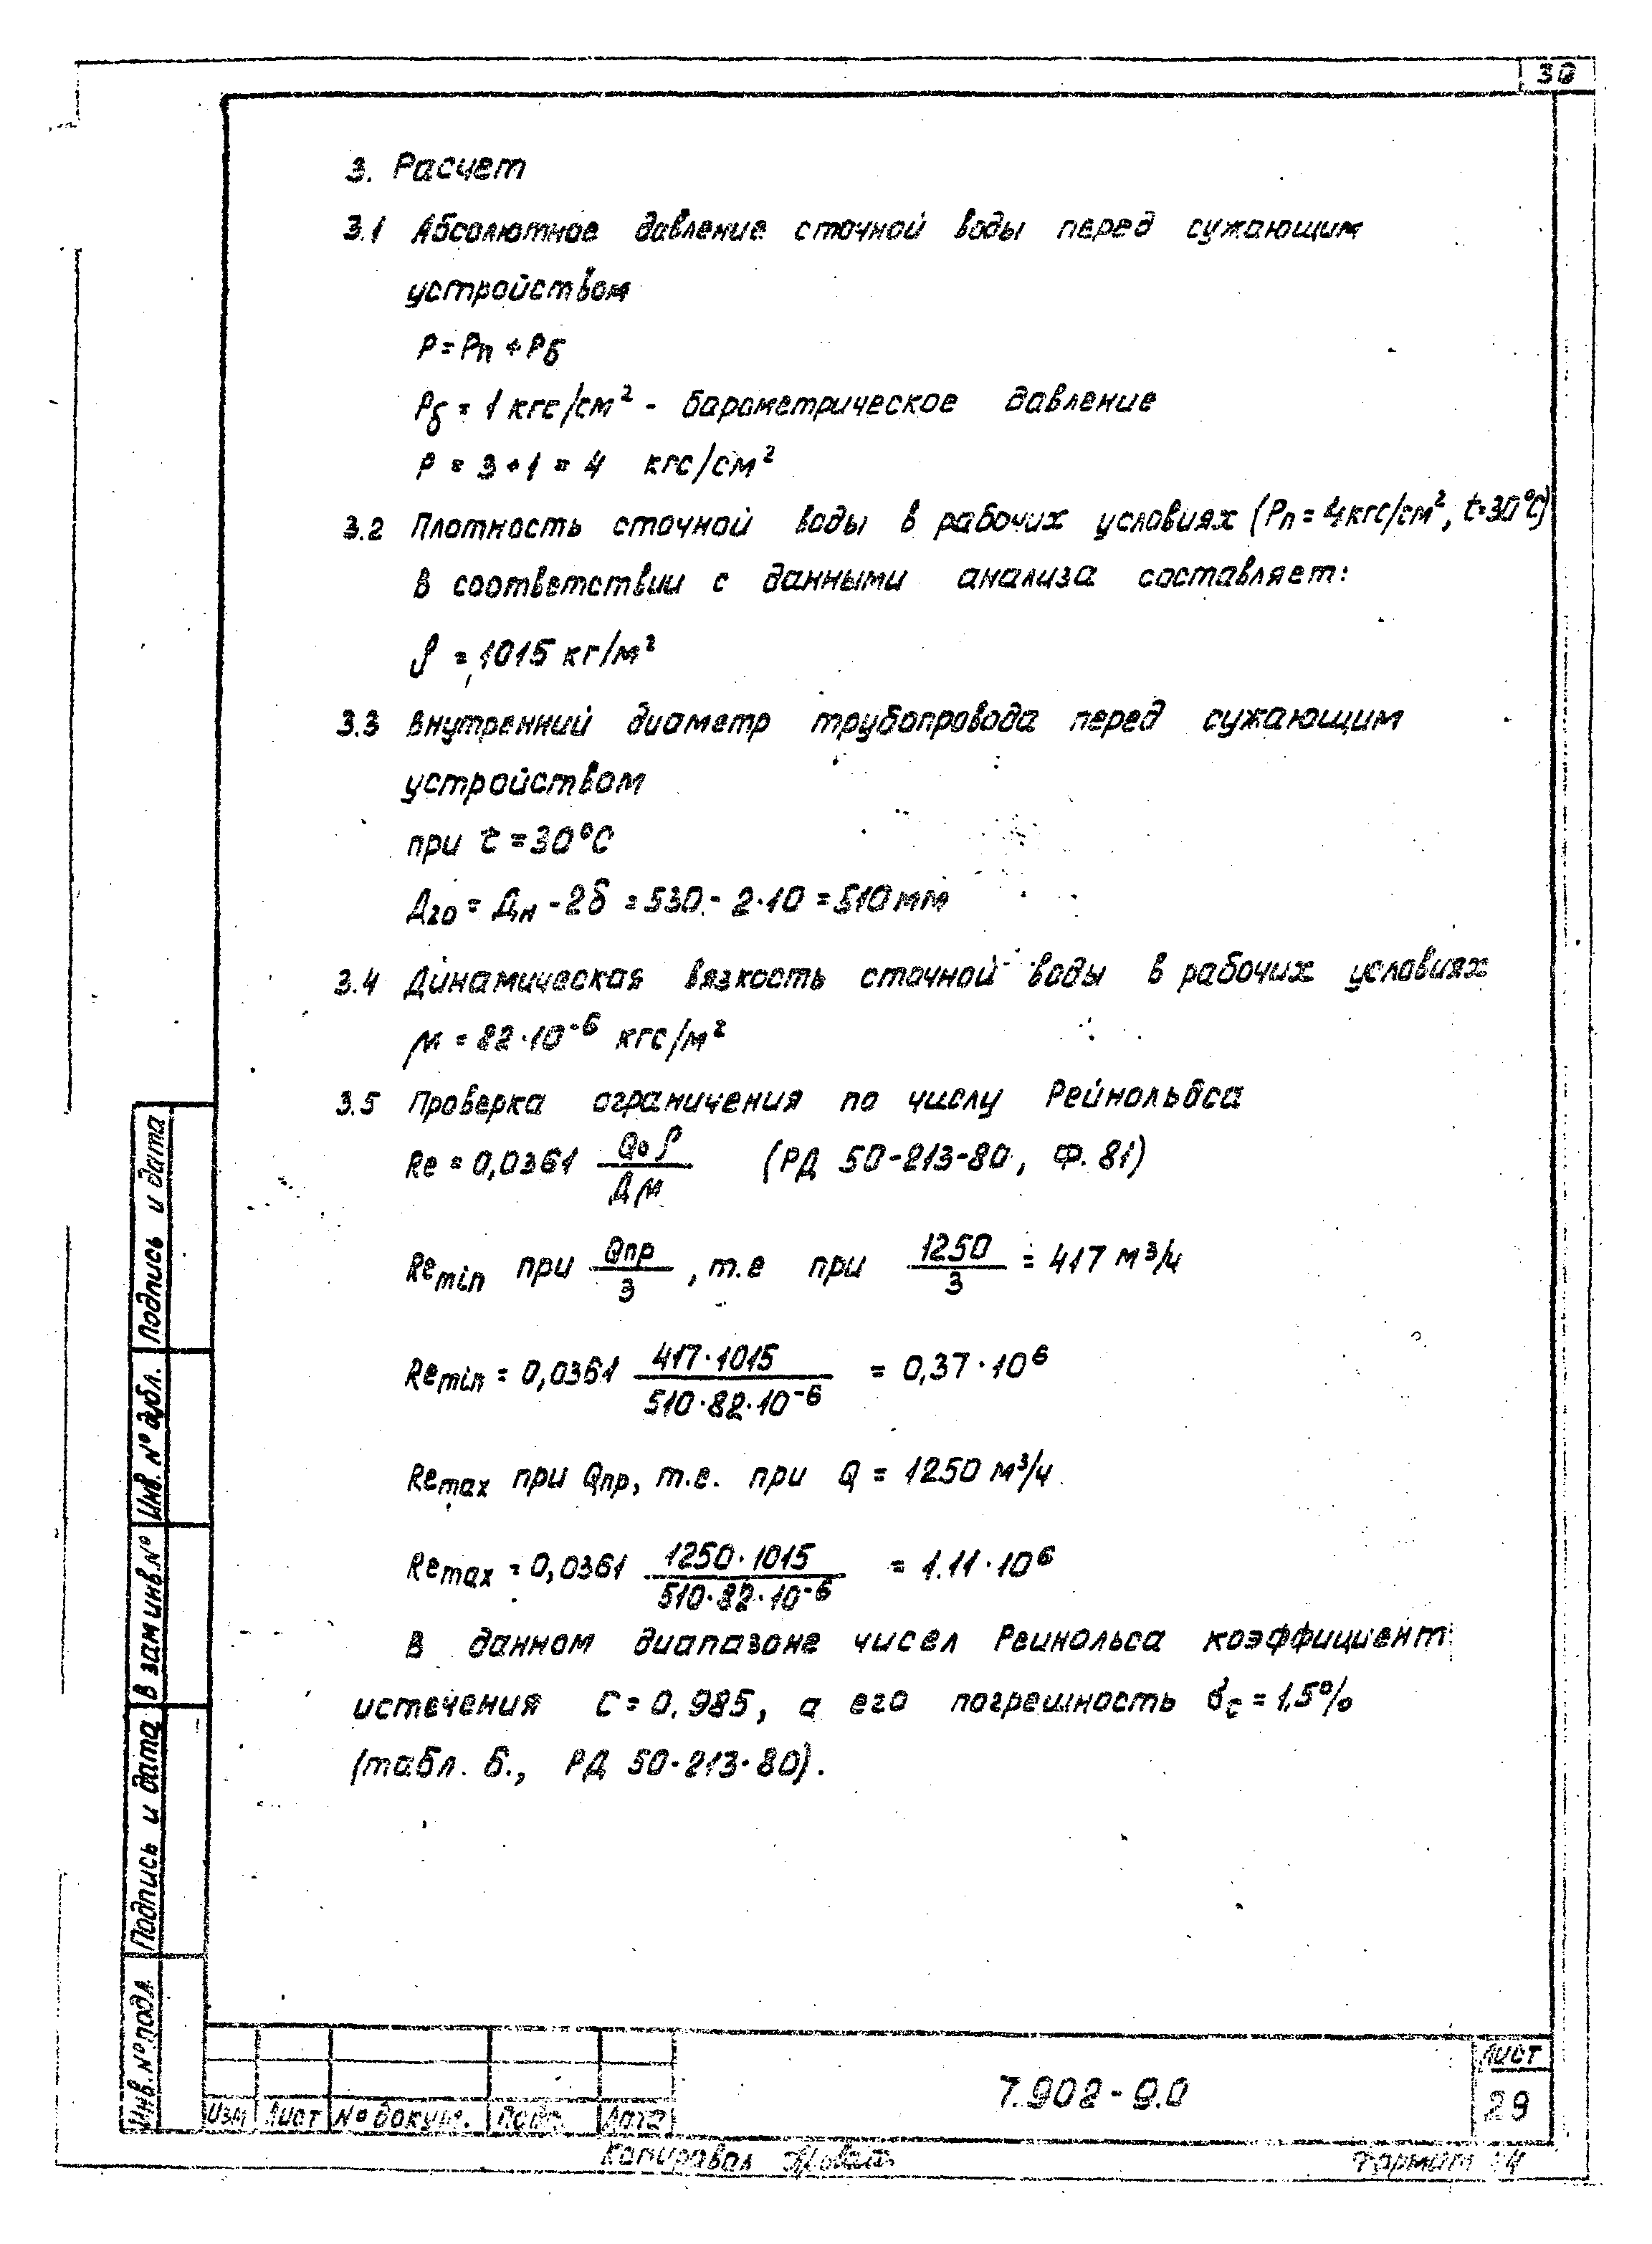 30
3. Расчет
3.1 Абсолютное давление сточной воды перед сужающим
устройством
P = Pп + Pб
Pб = 1 кгс/см² - барометрическое давление
P = 3 + 1 = 4 кгс/см²
3.2 Плотность сточной воды в рабочих условиях (Pп = 4 кгс/см², t=30°С)
в соответствии с данными анализа составляет:
ρ = 1015 кг/м²
3.3 Внутренний диаметр трубопровода перед сужающим
устройством
при t = 30°С
Д20 = Дн - 2δ = 530 - 2·10 = 510 мм
3.4 Динамическая вязкость сточной воды в рабочих условиях
μ = 82·10⁻⁶ кгс/м²
3.5 Проверка ограничения по числу Рейнольдса
Re = 0,0361 Qоρ / Дμ (РД 50-213-80, Ф. 81)
Remin при Qпр / 3, т.е при 1250 / 3 = 417 м³/ч
Remin = 0,0361 417·1015 / 510·82·10⁻⁶ = 0,37·10⁶
Remax при Qпр, т.е. при Q = 1250 м³/ч.
Remax = 0,0361 1250·1015 / 510·82·10⁻⁶ = 1.11·10⁶
В данном диапазоне чисел Реинольса коэффициент
истечения С = 0.985, а его погрешность σс = 1,5%
(табл. 6., РД 50-213-80).
Подпись и дата
Инв. № дубл.
Взам инв. №
Подпись и дата
Инв. № подл.
Изм Лист № докум. Подп. Дата
7.902-9.0
Лист
29
Копировал
Формат А4